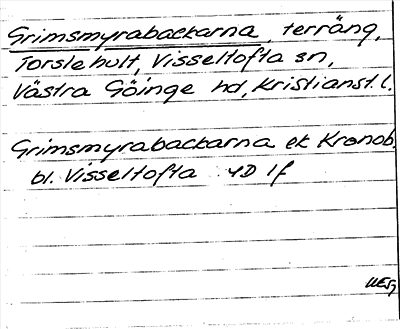 Grimsmyrabackarna, terräng,
Torslehult, Visseltofta sn,
Västra Göinge hd, Kristianst. l.
Grimsmyrabackarna ek Kronob.
bl. Visseltofta 4D 1f